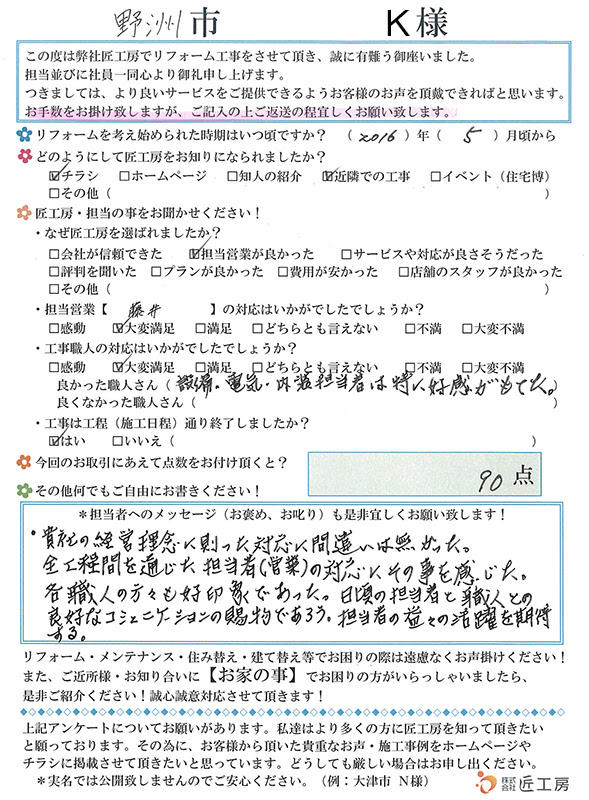 野洲市 K様
この度は弊社匠工房でリフォーム工事をさせて頂き、誠に有難う御座いました。
担当並びに社員一同心より御礼申し上げます。
つきましては、より良いサービスをご提供できるようお客様のお声を頂戴できればと思います。
お手数をお掛け致しますが、ご記入の上ご返送の程宜しくお願い致します。
リフォームを考え始められた時期はいつ頃ですか? (2016)年(5)月頃から
どのようにして匠工房をお知りになられましたか?
☑チラシ □ホームページ □知人の紹介 ☑近隣での工事 □イベント(住宅博)
□その他( )
匠工房・担当の事をお聞かせください!
・なぜ匠工房を選ばれましたか?
□会社が信頼できた ☑担当営業が良かった □サービスや対応が良さそうだった
□評判を聞いた □プランが良かった □費用が安かった □店舗のスタッフが良かった
□その他( )
・担当営業【 藤井 】の対応はいかがでしたでしょうか?
□感動 ☑大変満足 □満足 □どちらとも言えない □不満 □大変不満
・工事職人の対応はいかがでしたでしょうか?
□感動 ☑大変満足 □満足 □どちらとも言えない □不満 □大変不満
良かった職人さん(設備・電気・内装担当者は特に好感がもてた。)
良くなかった職人さん( )
・工事は工程(施工日程)通り終了しましたか?
☑はい □いいえ( )
今回のお取引にあえて点数をお付け頂くと? 90点
その他何でもご自由にお書きください!
*担当者へのメッセージ(お褒め、お叱り)も是非宜しくお願い致します!
・貴社の経営理念に則った対応に間違いは無かった。
全工程間を通じた担当者(営業)の対応にその事を感じた。
各職人の方々も好印象であった。日頃の担当者と職人との
良好なコミュニケーションの賜物であろう。担当者の益々の活躍を期待
する。
リフォーム・メンテナンス・住み替え・建て替え等でお困りの際は遠慮なくお声掛けください!
また、ご近所様・お知り合いに【お家の事】でお困りの方がいらっしゃいましたら、
是非ご紹介ください!誠心誠意対応させて頂きます!
上記アンケートについてお願いがあります。私達はより多くの方に匠工房を知って頂きたい
と願っております。その為に、お客様から頂いた貴重なお声・施工事例をホームページや
チラシに掲載させて頂きたいと思っています。どうしても厳しい場合はお申し出ください。
*実名では公開致しませんのでご安心ください。(例:大津市 N様)
株式会社 匠工房